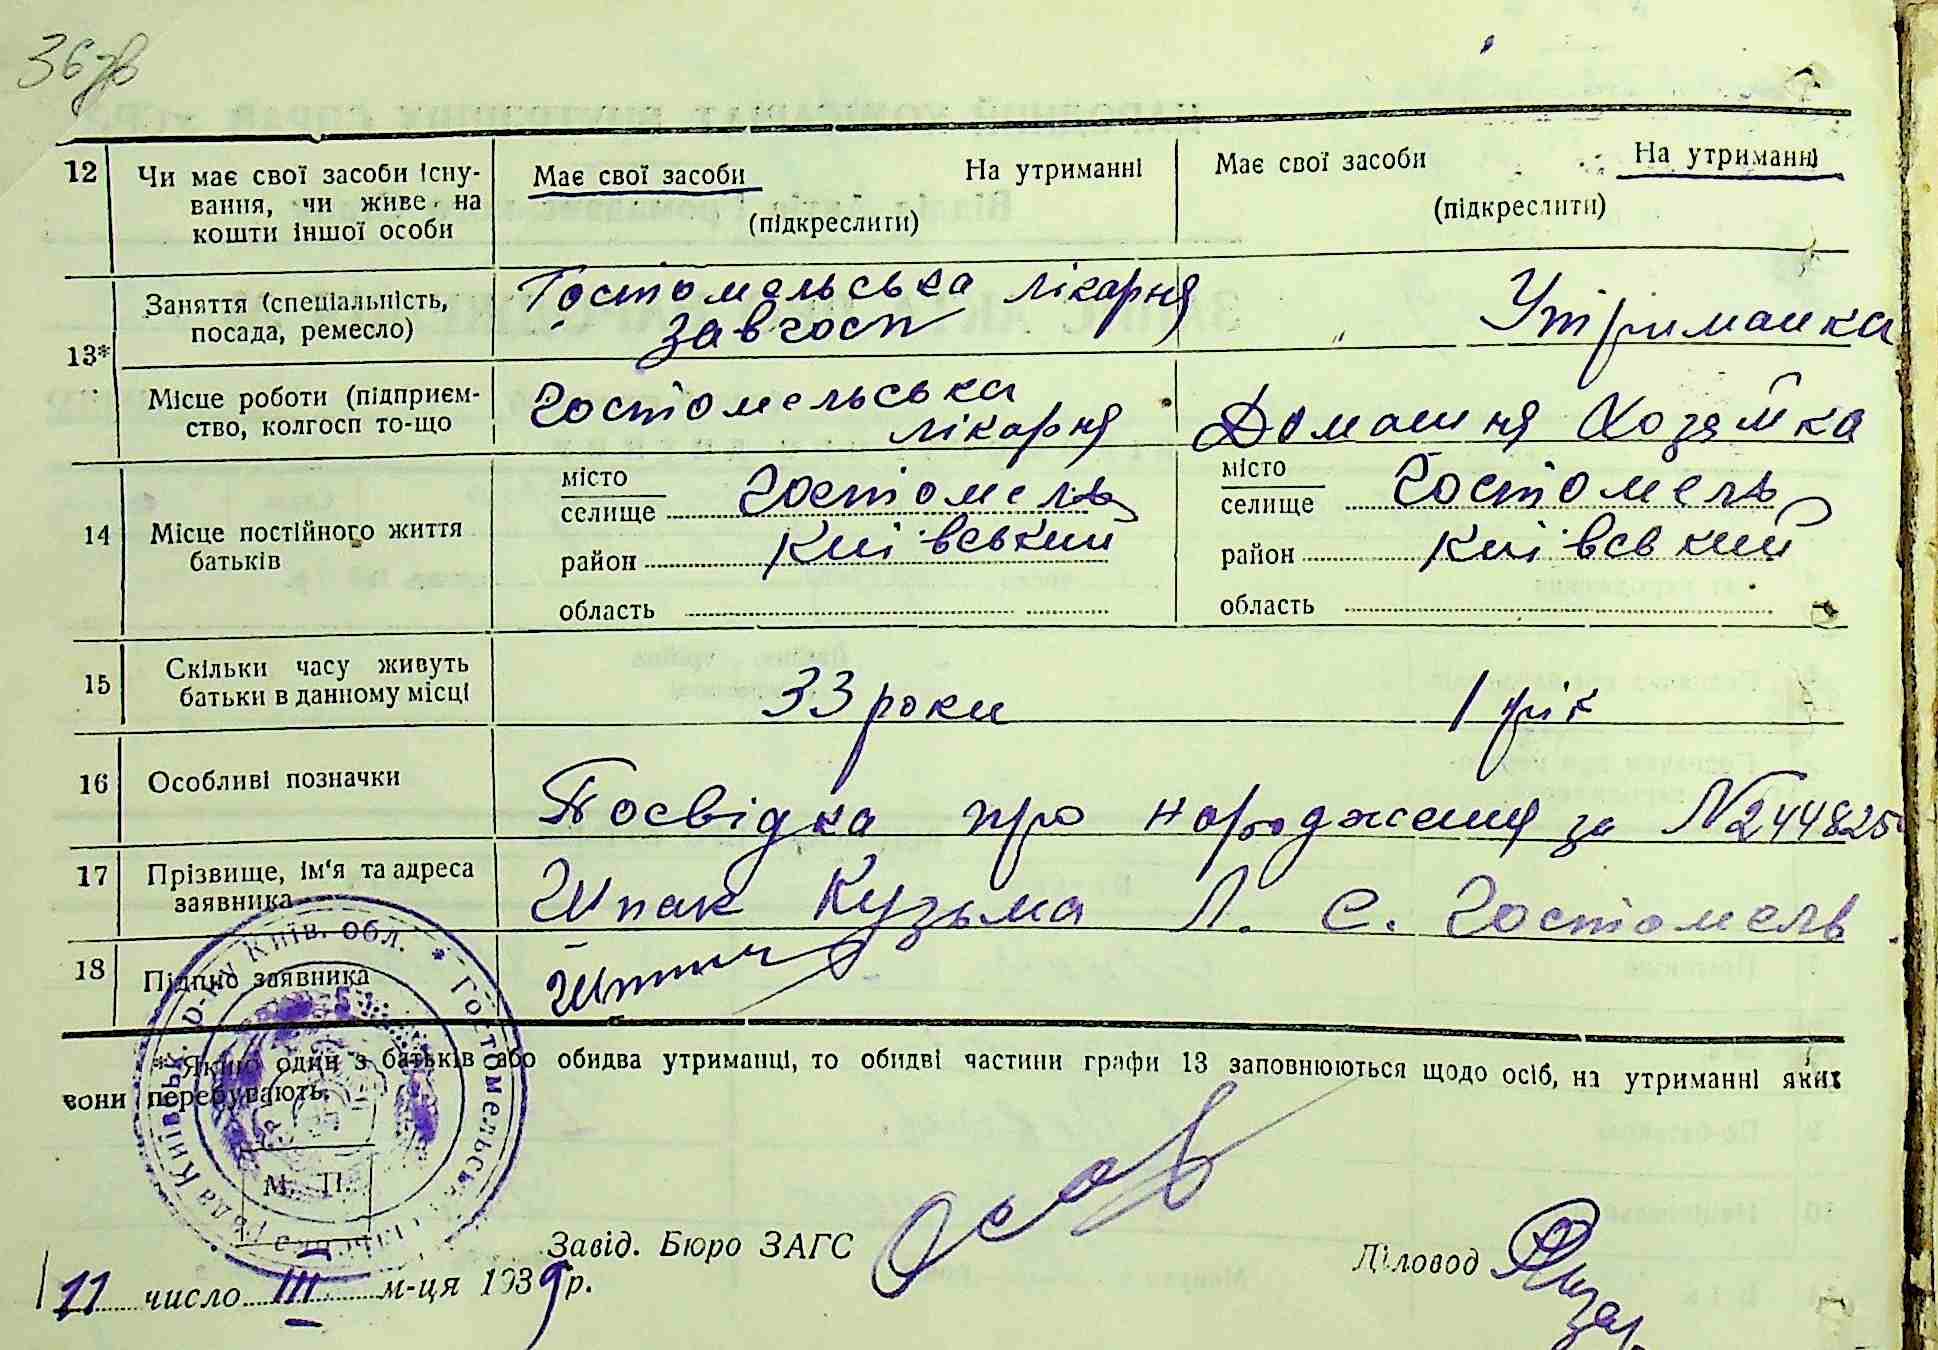 36 зв
12 Чи має свої засоби існу- Має свої засоби На утриманні Має свої засоби На утриманні
вання, чи живе на (підкреслити) (підкреслити)
кошти іншої особи
13* Заняття (спеціальність, Гостомельська лікарня Утриманка
посада, ремесло) завгосп
Місце роботи (підприєм- Гостомельська Домашня Хозяйка
ство, колгосп то-що лікарня
14 Місце постійного життя батьків
місто Гостомель місто Гостомель
селище селище
район Київський район Київський
область область
15 Скільки часу живуть 33 роки 1 рік
батьки в данному місці
16 Особливі позначки Посвідка про народження за №244825
17 Прізвище, ім'я та адреса Шпак Кузьма Л. С. Гостомель
заявника
18 Підпис заявника
* Якщо один з батьків або обидва утриманці, то обидві частини графи 13 заповнюються щодо осіб, на утриманні яких
вони перебувають.
М. П.
Завід. Бюро ЗАГС Діловод
11 число III м-ця 1939 р.
рада Київськ. р-ну Київ. обл. * Гостомельська